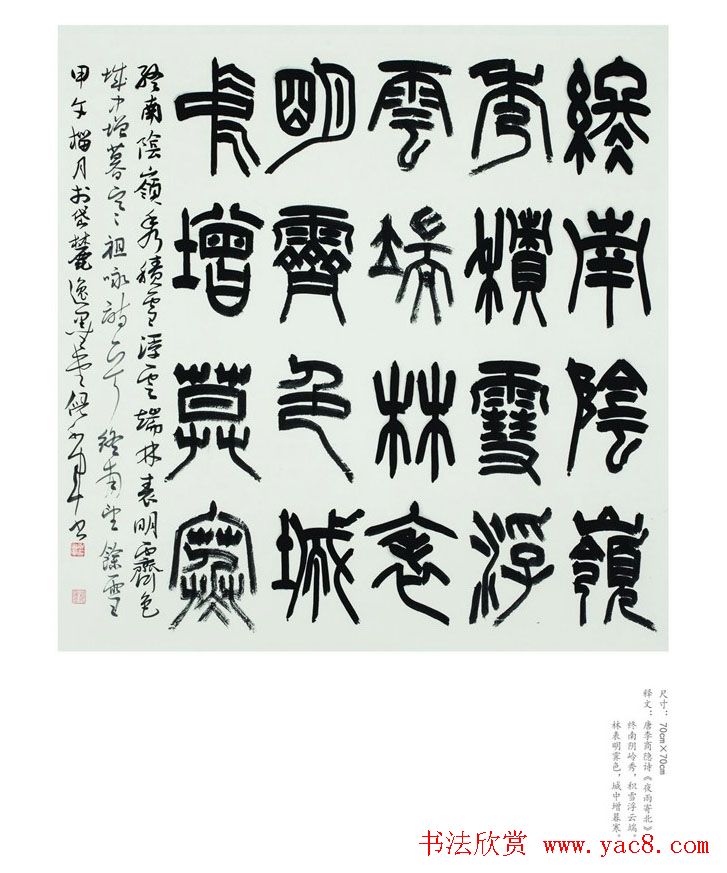 終南陰嶺
秀積雪浮
雲端林表
明霽色城
中增莫寒
終南陰嶺秀積雪浮雲端林表明霽色
城中增暮寒 祖咏詩 終南望餘雪
甲午榴月於岱麓逸墨堂 書
尺寸：70cm×70cm
释文：唐李商隐诗《夜雨寄北》
终南阴岭秀，积雪浮云端。
林表明霁色，城中增暮寒。
书法欣赏 www.yac8.com